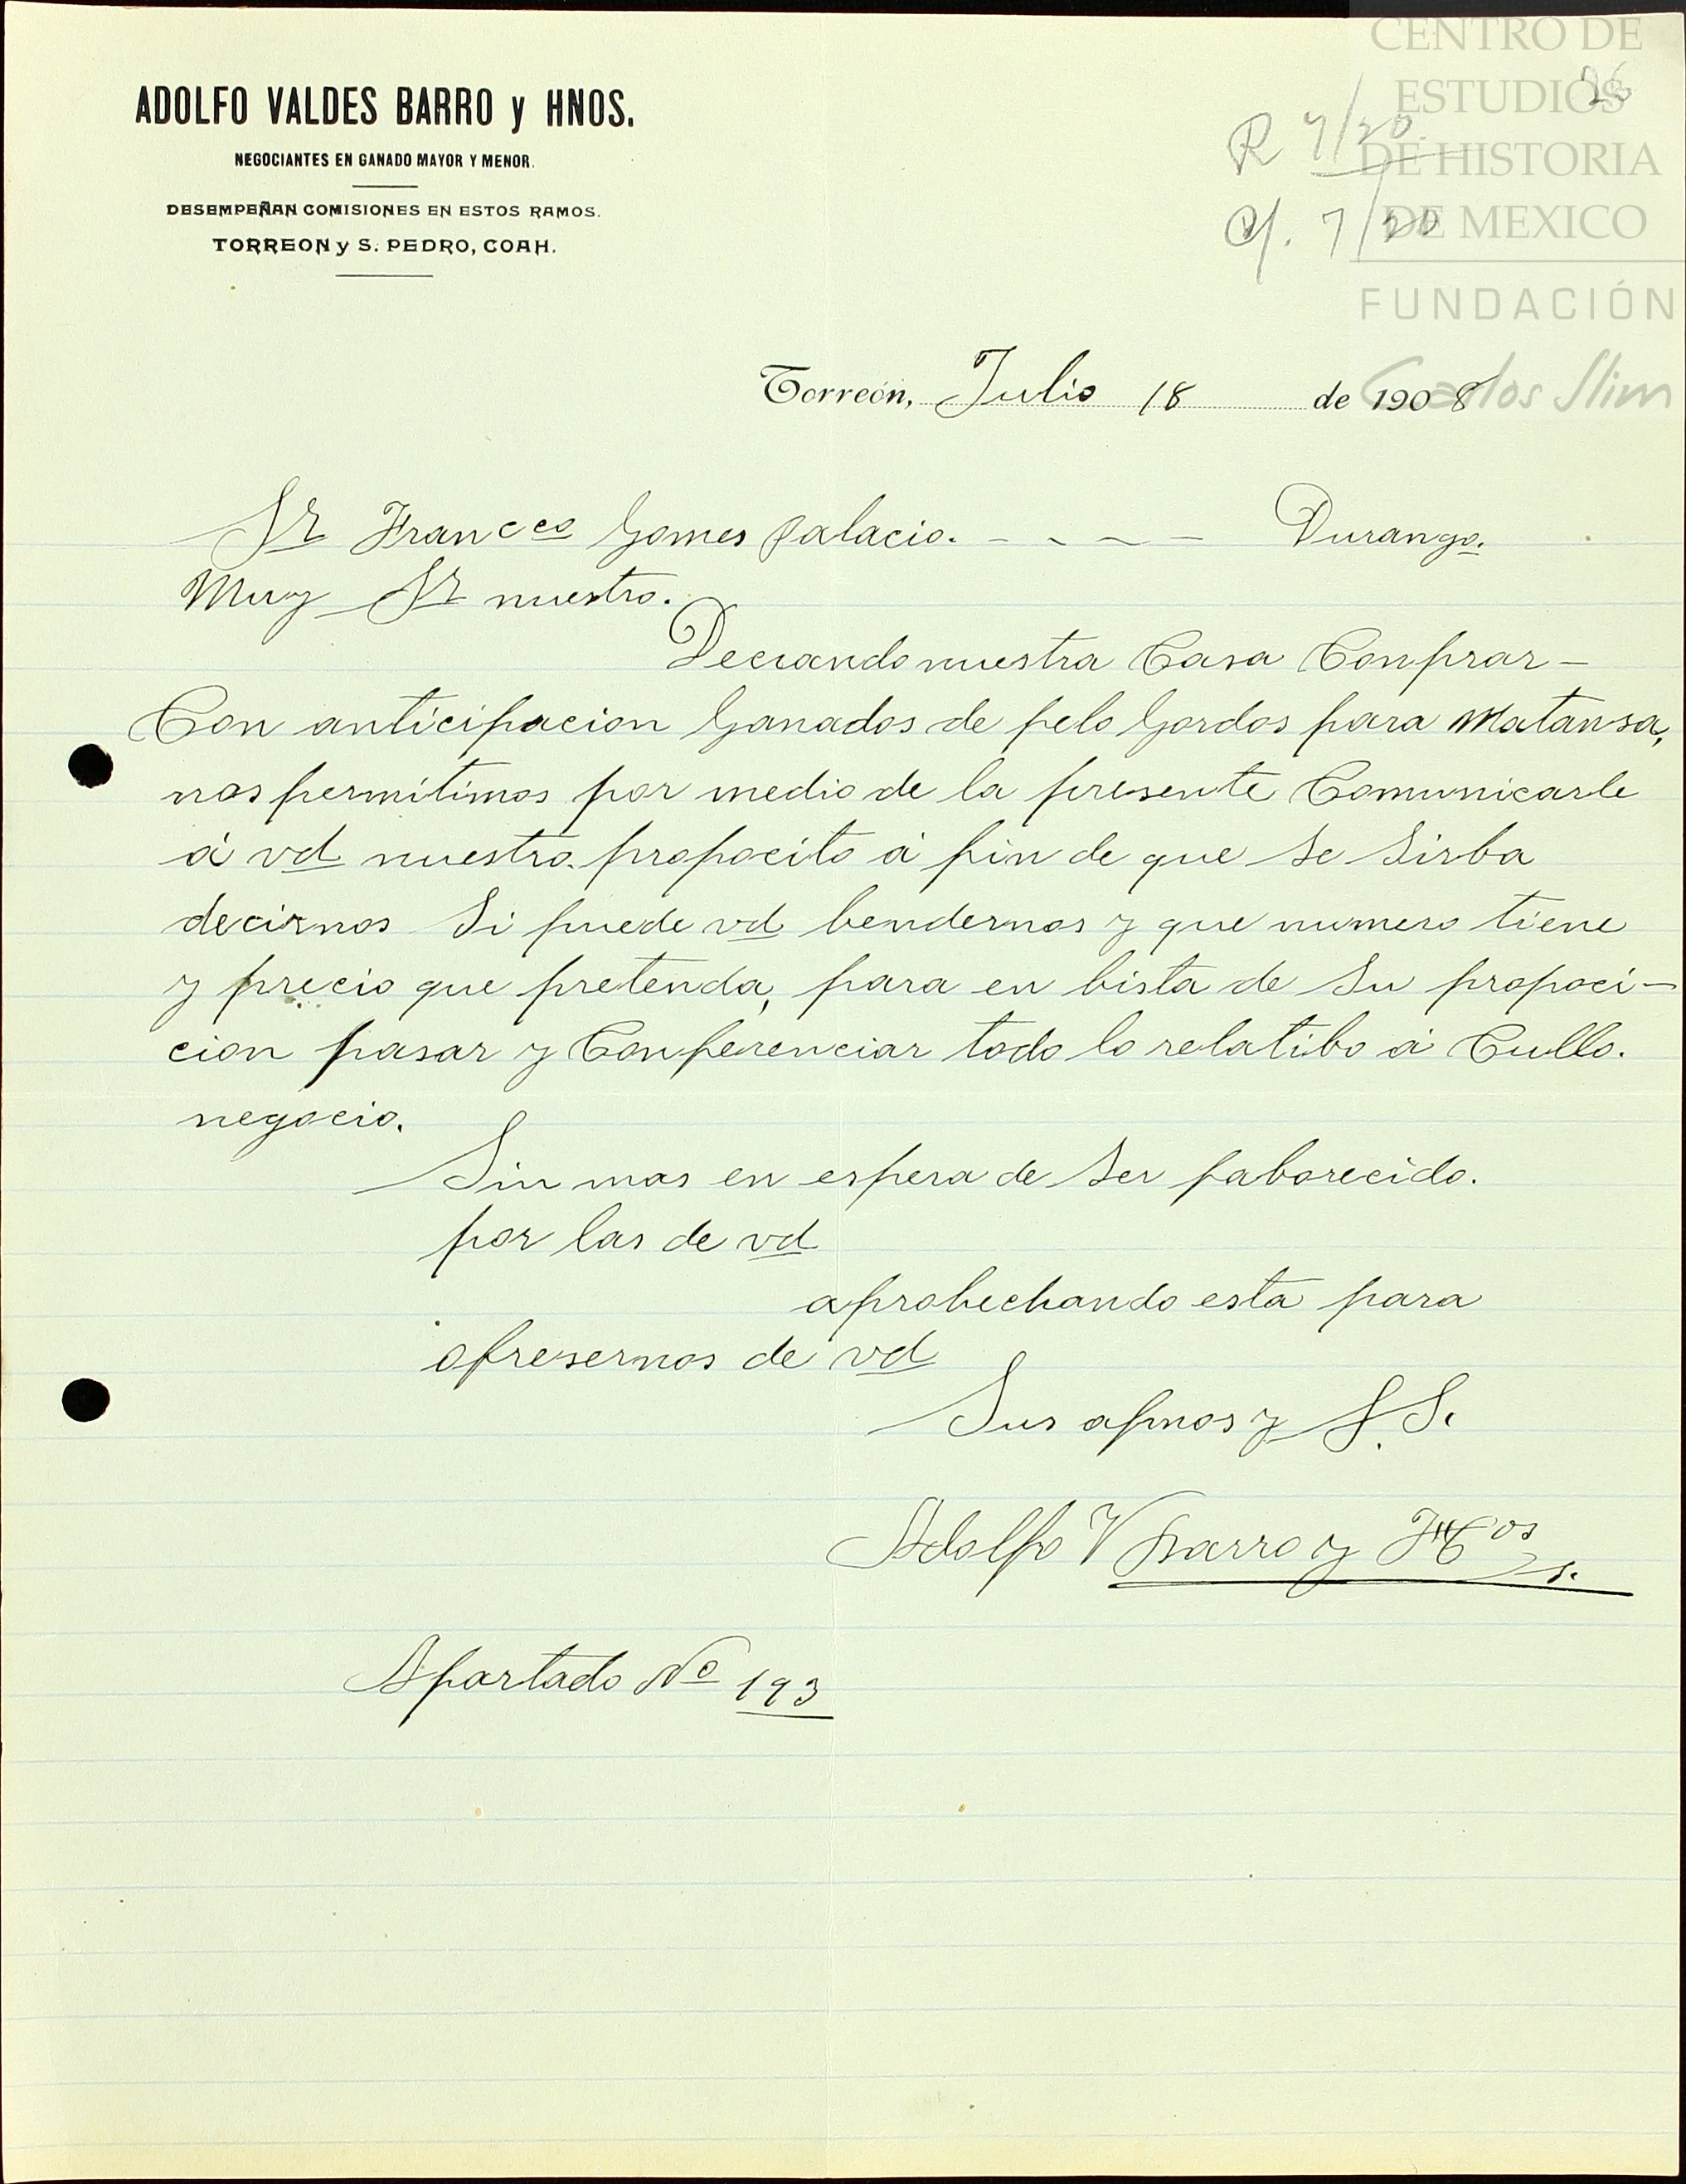 CENTRO DE
ESTUDIOS
DE HISTORIA
DE MEXICO
FUNDACIÓN
Carlos Slim
26
R 7/20
C/. 7/20
ADOLFO VALDES BARRO y HNOS.
NEGOCIANTES EN GANADO MAYOR Y MENOR.
DESEMPEÑAN COMISIONES EN ESTOS RAMOS.
TORREON y S. PEDRO, COAH.
Torreón, Julio 18 de 1908
Sr Francco Gomes Palacio. - - - - Durango.
Muy Sr nuestro.
Deceando nuestra Casa Conprar-
Con anticipacion Ganados de pelo Gordos para Matansa,
nos permitimos por medio de la presente Comunicarle
á vd nuestro. propocito á fin de que se Sirba
decirnos Si puede vd bendernos y que numero tiene
y precio que pretenda, para en bista de Su propoci-
cion pasar y Conferenciar todo lo relatibo á Cullo.
negocio.
Sin mas en espera de Ser faborecido.
por las de vd
aprobechando esta para
ofresernos de vd
Sus afmos y S. S.
Adolfo V Barro y Hos
Apartado No 193